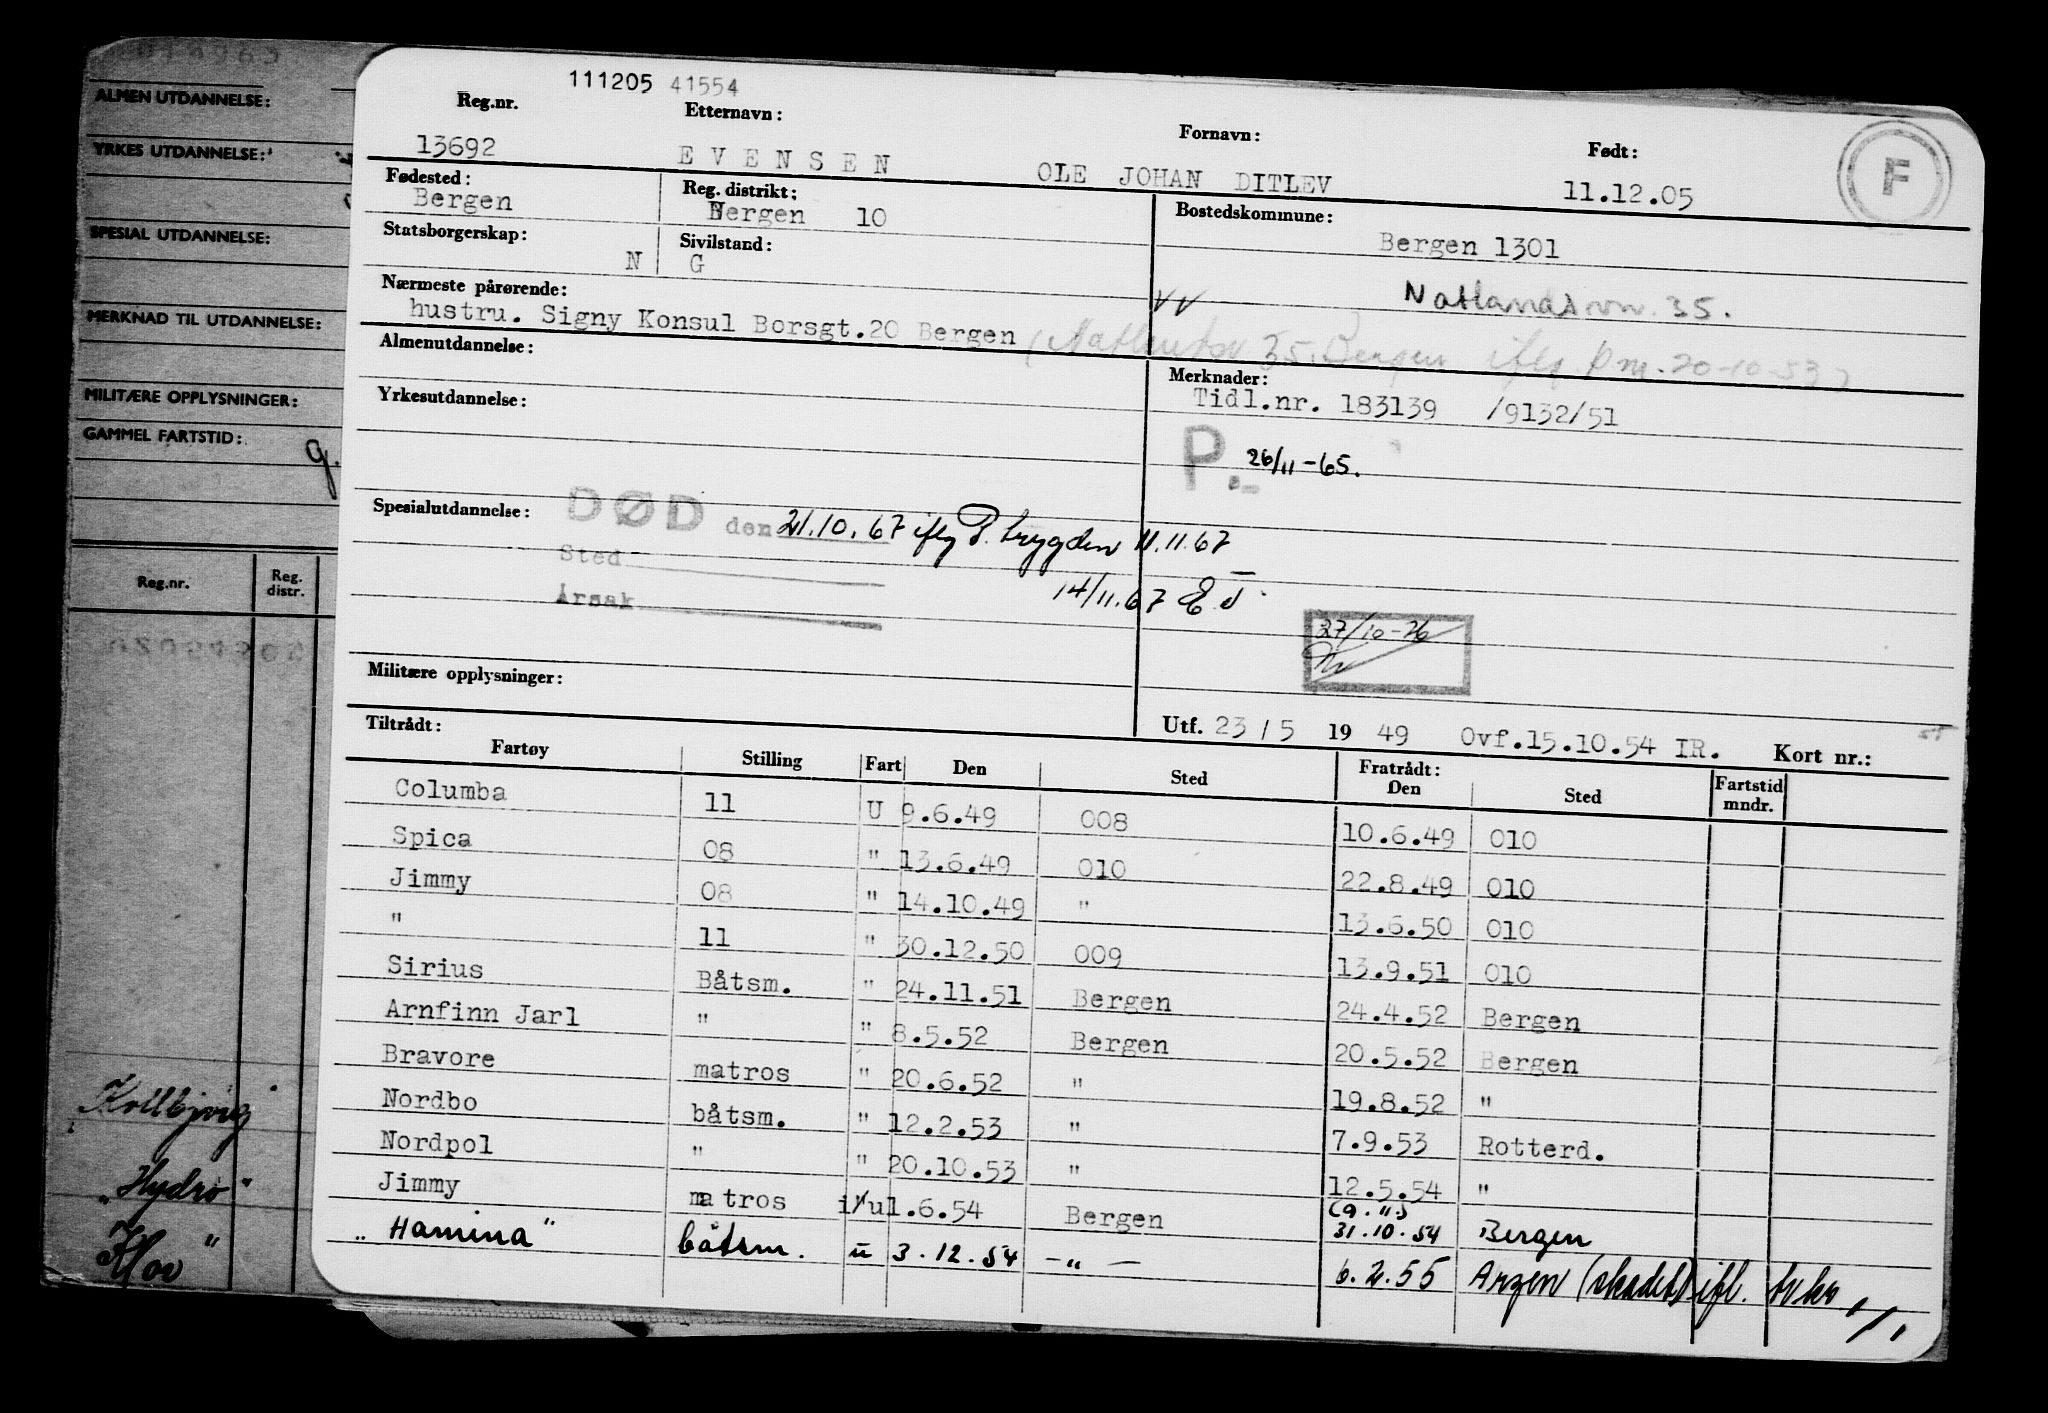 ALMEN UTDANNELSE:
YRKES UTDANNELSE:
SPESIAL UTDANNELSE:
MERKNAD TIL UTDANNELSE:
MILITÆRE OPPLYSNINGER:
GAMMEL FARTSTID:
Reg.nr. Reg. distr.
Kollbjørg
"Hydro"
Klov "
111205 41554
Reg.nr. Etternavn: Fornavn: Født:
13692 EVENSEN OLE JOHAN DITLEV 11.12.05 F
Fødested: Reg. distrikt: Bostedskommune:
Bergen Bergen 10 Bergen 1301
Statsborgerskap: Sivilstand:
N G
Nærmeste pårørende: Natlandsvn. 35.
hustru. Signy Konsul Borsgt.20 Bergen
35 Bergen iflg. 20-10-53)
Almenutdannelse: Merknader:
Tidl.nr. 183139 /9132/51
Yrkesutdannelse:
P. 26/11-65.
Spesialutdannelse: DØD den 21.10.67 iflg P.trygden 11.11.67
Sted
Årsak 14/11.67
27/10-76
Militære opplysninger:
Utf. 23 / 5 19 49 Ovf.15.10.54 IR. Kort nr.:
Tiltrådt: Fratrådt:
Fartøy Stilling Fart Den Sted Den Sted Fartstid mndr.
Columba 11 U 9.6.49 008 10.6.49 010
Spica 08 " 13.6.49 010 22.8.49 010
Jimmy 08 " 14.10.49 " 13.6.50 010
" 11 " 30.12.50 009 13.9.51 010
Sirius Båtsm. " 24.11.51 Bergen 24.4.52 Bergen
Arnfinn Jarl " " 8.5.52 Bergen 20.5.52 Bergen
Bravore matros " 20.6.52 " 19.8.52 "
Nordbo båtsm. " 12.2.53 " 7.9.53 Rotterd.
Nordpol " " 20.10.53 " 12.5.54 "
Jimmy matros i/u 1.6.54 Bergen 31.10.54 Bergen
"Hamina" båtsm. u 3.12.54 -"- 6.2.55 Arzen (skadet) ifl.